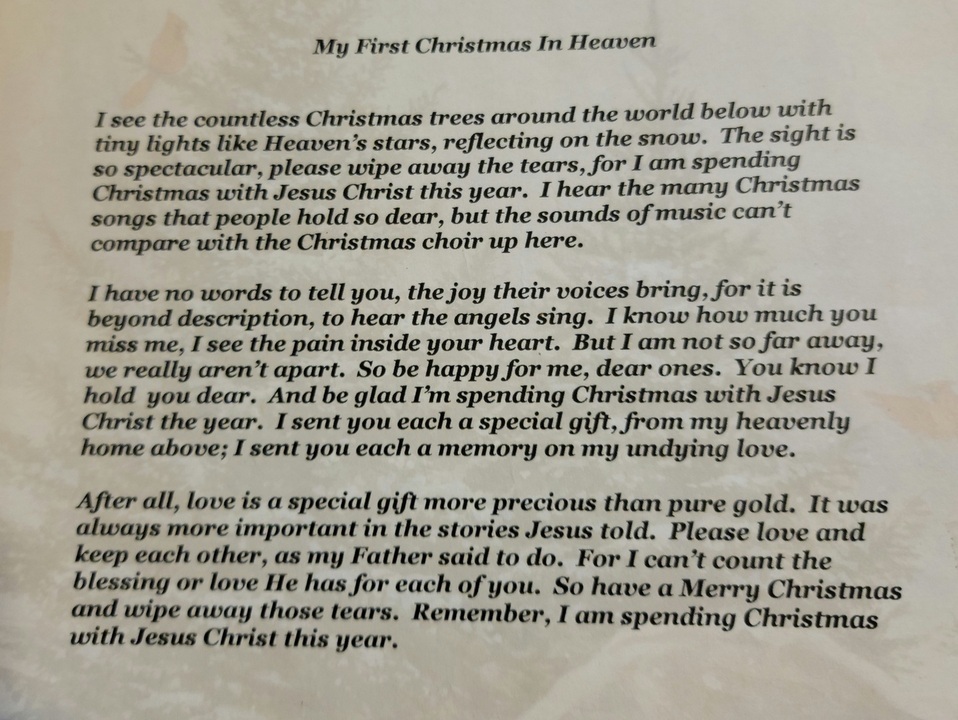 My First Christmas In Heaven
I see the countless Christmas trees around the world below with
tiny lights like Heaven's stars, reflecting on the snow. The sight is
so spectacular, please wipe away the tears, for I am spending
Christmas with Jesus Christ this year. I hear the many Christmas
songs that people hold so dear, but the sounds of music can't
compare with the Christmas choir up here.
I have no words to tell you, the joy their voices bring, for it is
beyond description, to hear the angels sing. I know how much you
miss me, I see the pain inside your heart. But I am not so far away,
we really aren't apart. So be happy for me, dear ones. You know I
hold you dear. And be glad I'm spending Christmas with Jesus
Christ the year. I sent you each a special gift, from my heavenly
home above; I sent you each a memory on my undying love.
After all, love is a special gift more precious than pure gold. It was
always more important in the stories Jesus told. Please love and
keep each other, as my Father said to do. For I can't count the
blessing or love He has for each of you. So have a Merry Christmas
and wipe away those tears. Remember, I am spending Christmas
with Jesus Christ this year.